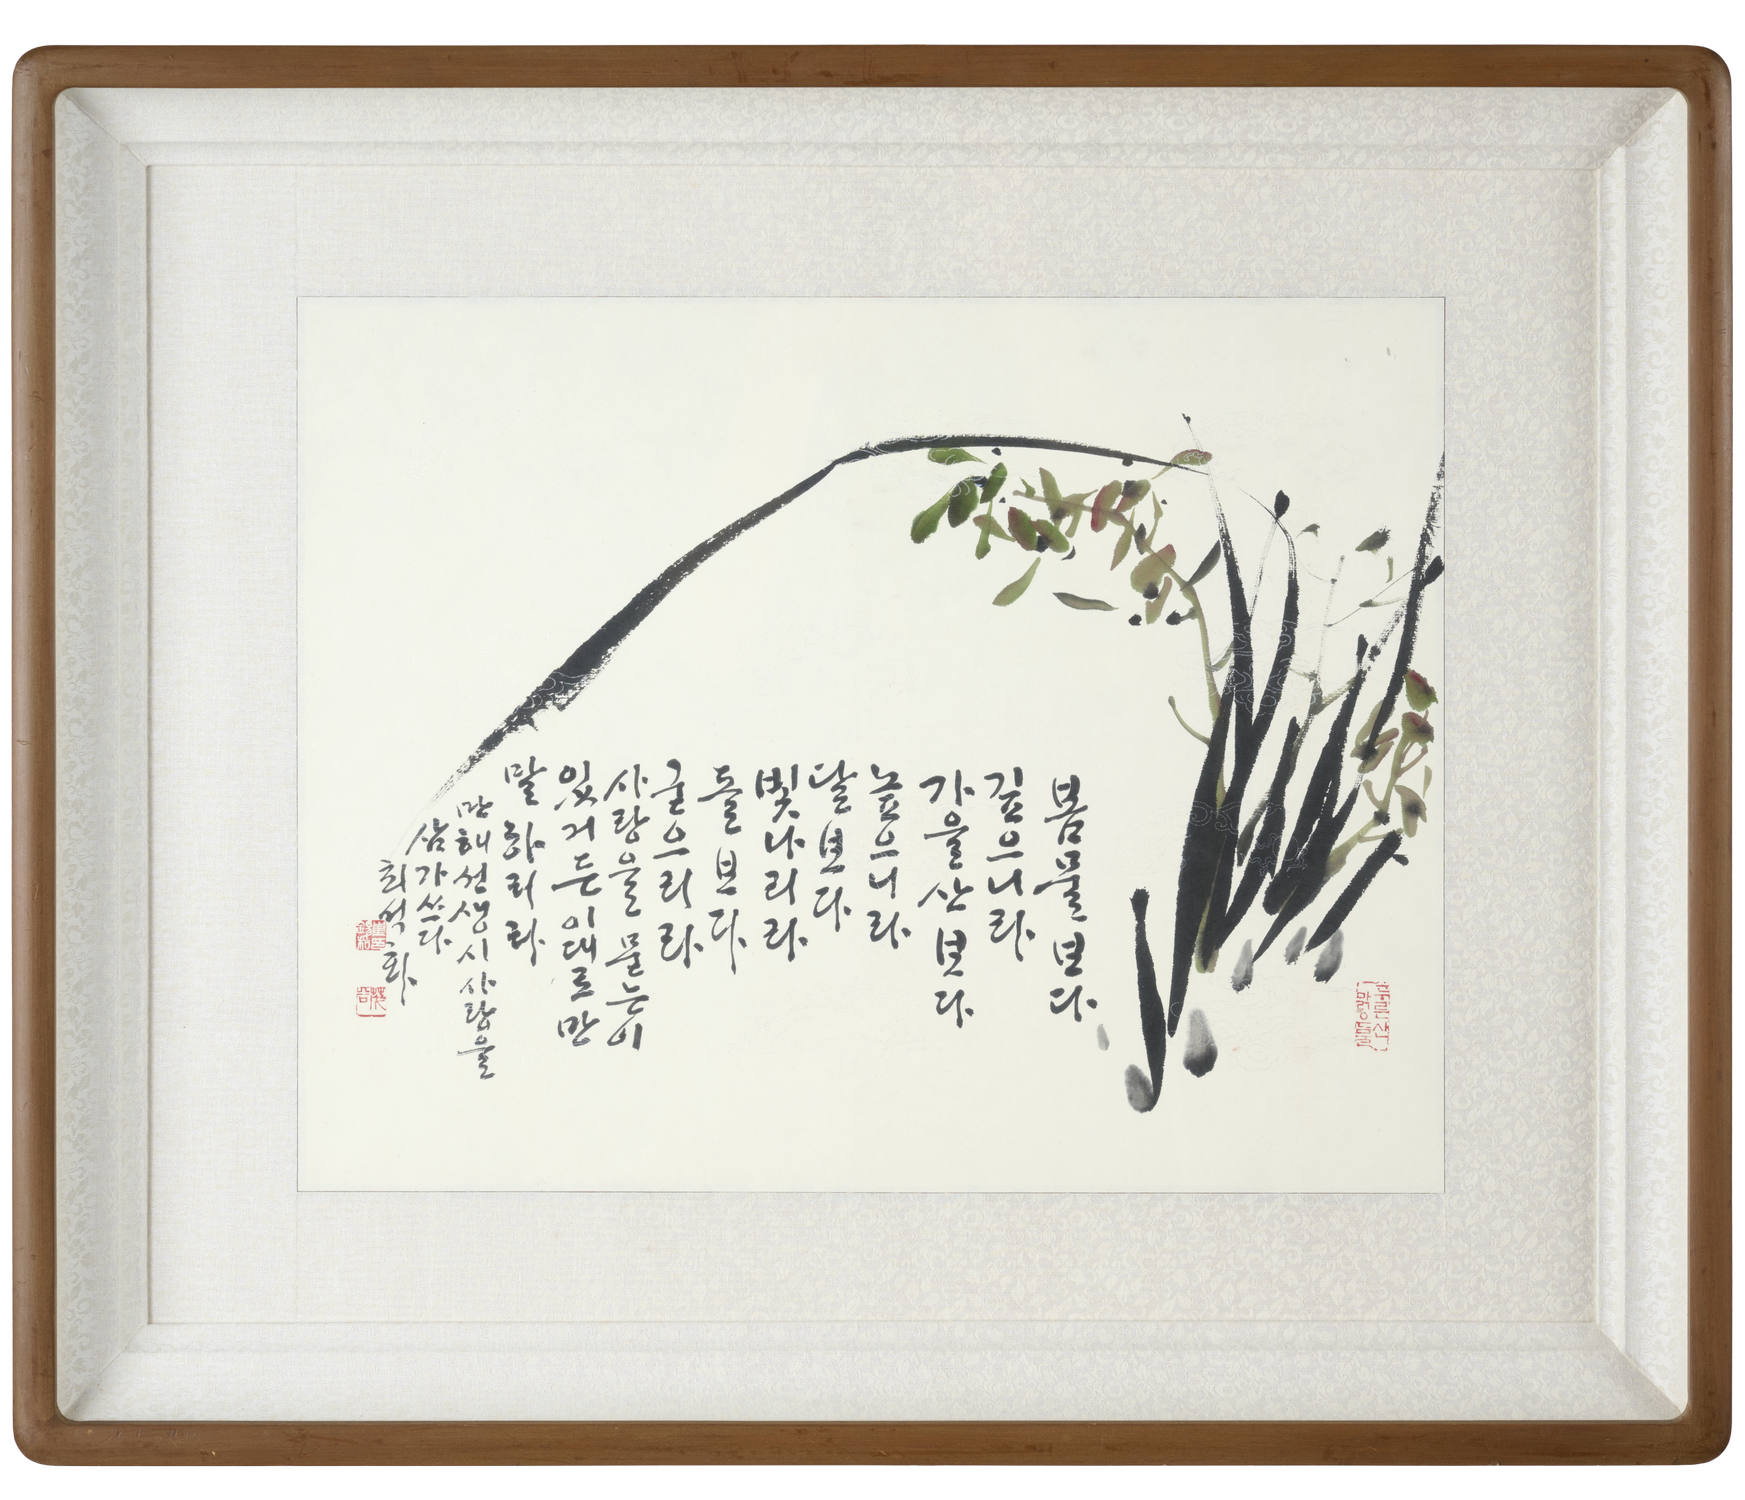 봄물보다
깊으니라
가을산보다
높으니라
달보다
빛나리라
돌보다
굳으리라
사랑을 묻는이
있거든 이대로만
말하리라
만해선생 시 사랑을
삼가쓰다
최석화
푸른산